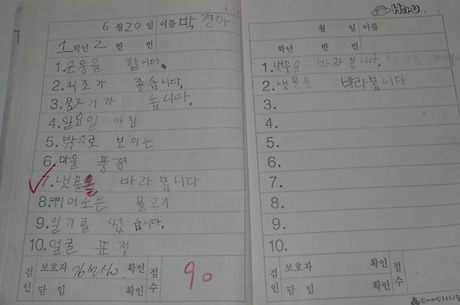 6월 20일 이름 박경아
1학년 2반 번
1. 운동을 합니다.
2. 체조가 좋습니다.
3. 물고기가 놉니다.
4. 일요일 아침
5. 밖으로 보이는
6. 마을 풍경
7. 냇물을 바라봅니다
8. 뛰어노는 물고기
9. 일기를 씁니다.
10. 얼굴 표정
검인 보호자 확인 점수 90
담임 확인
월 일 이름
학년 반 번
1. 냇물을 바라봅니다.
2. 냇물을 바라봅니다
3.
4.
5.
6.
7.
8.
9.
10.
검인 보호자 확인 점수
담임 확인